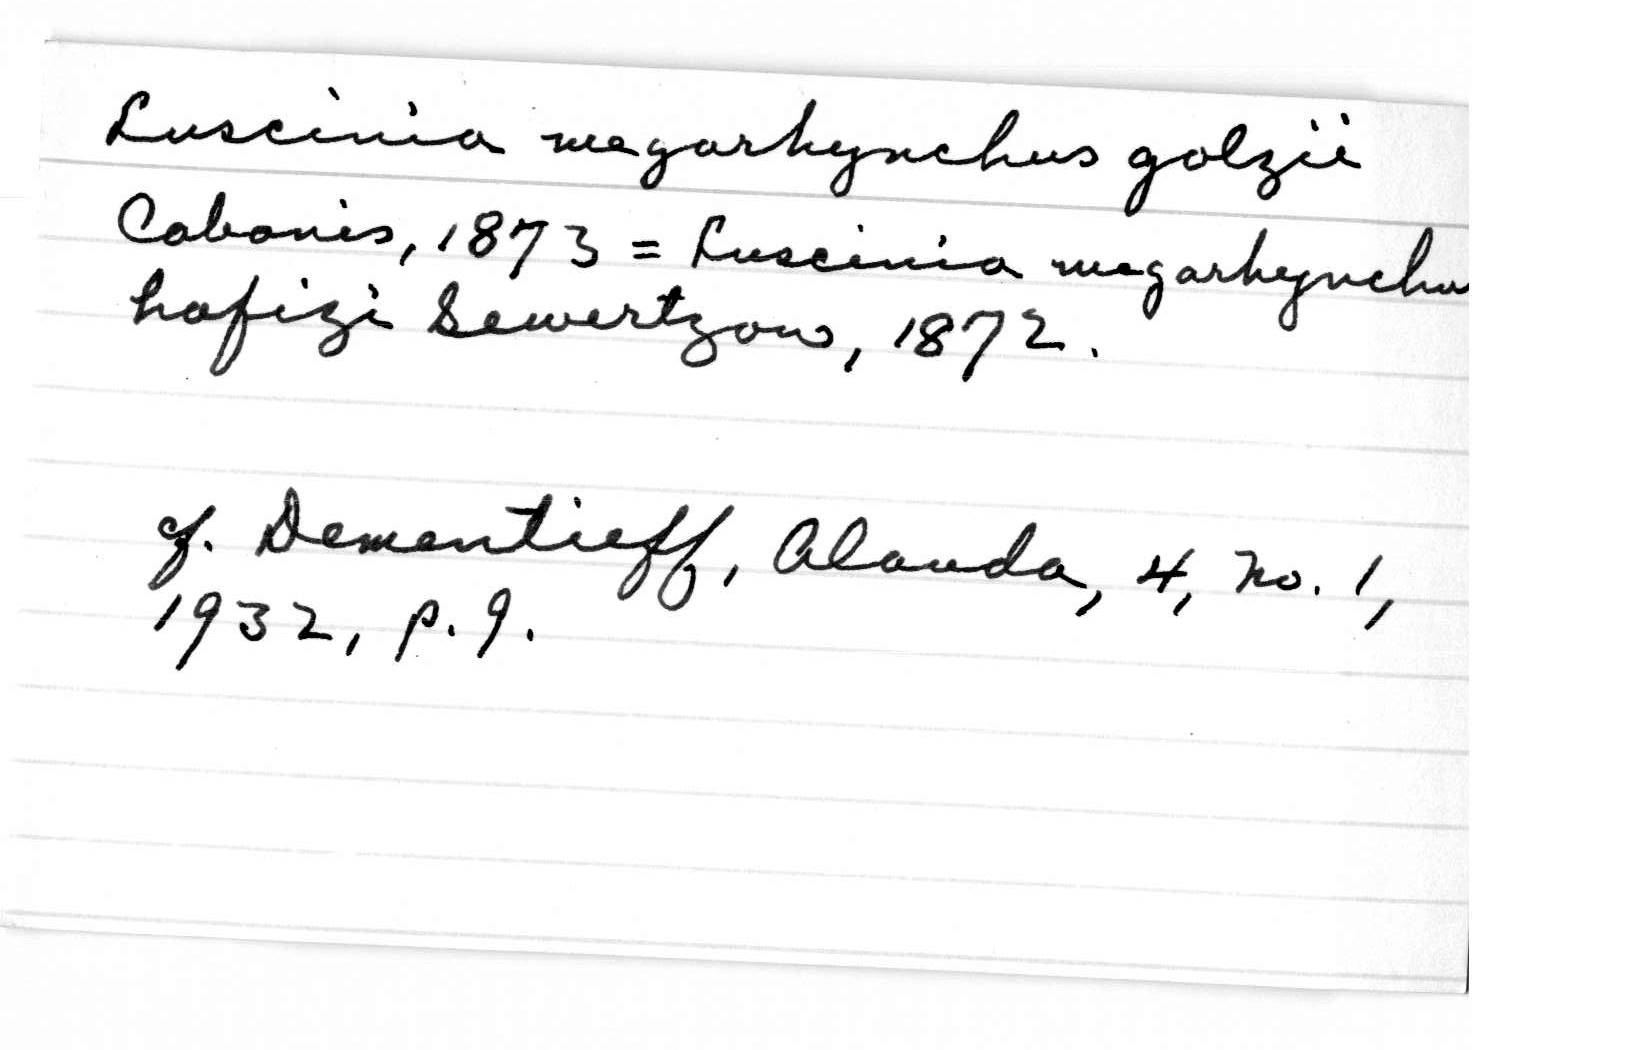 Luscinia megarhynchus golzii
Cabanis, 1873 = Luscinia megarhynchu
hafizi Sewertzow, 1872.
cf. Dementieff, Alauda, 4, no. 1,
1932, p. 9.